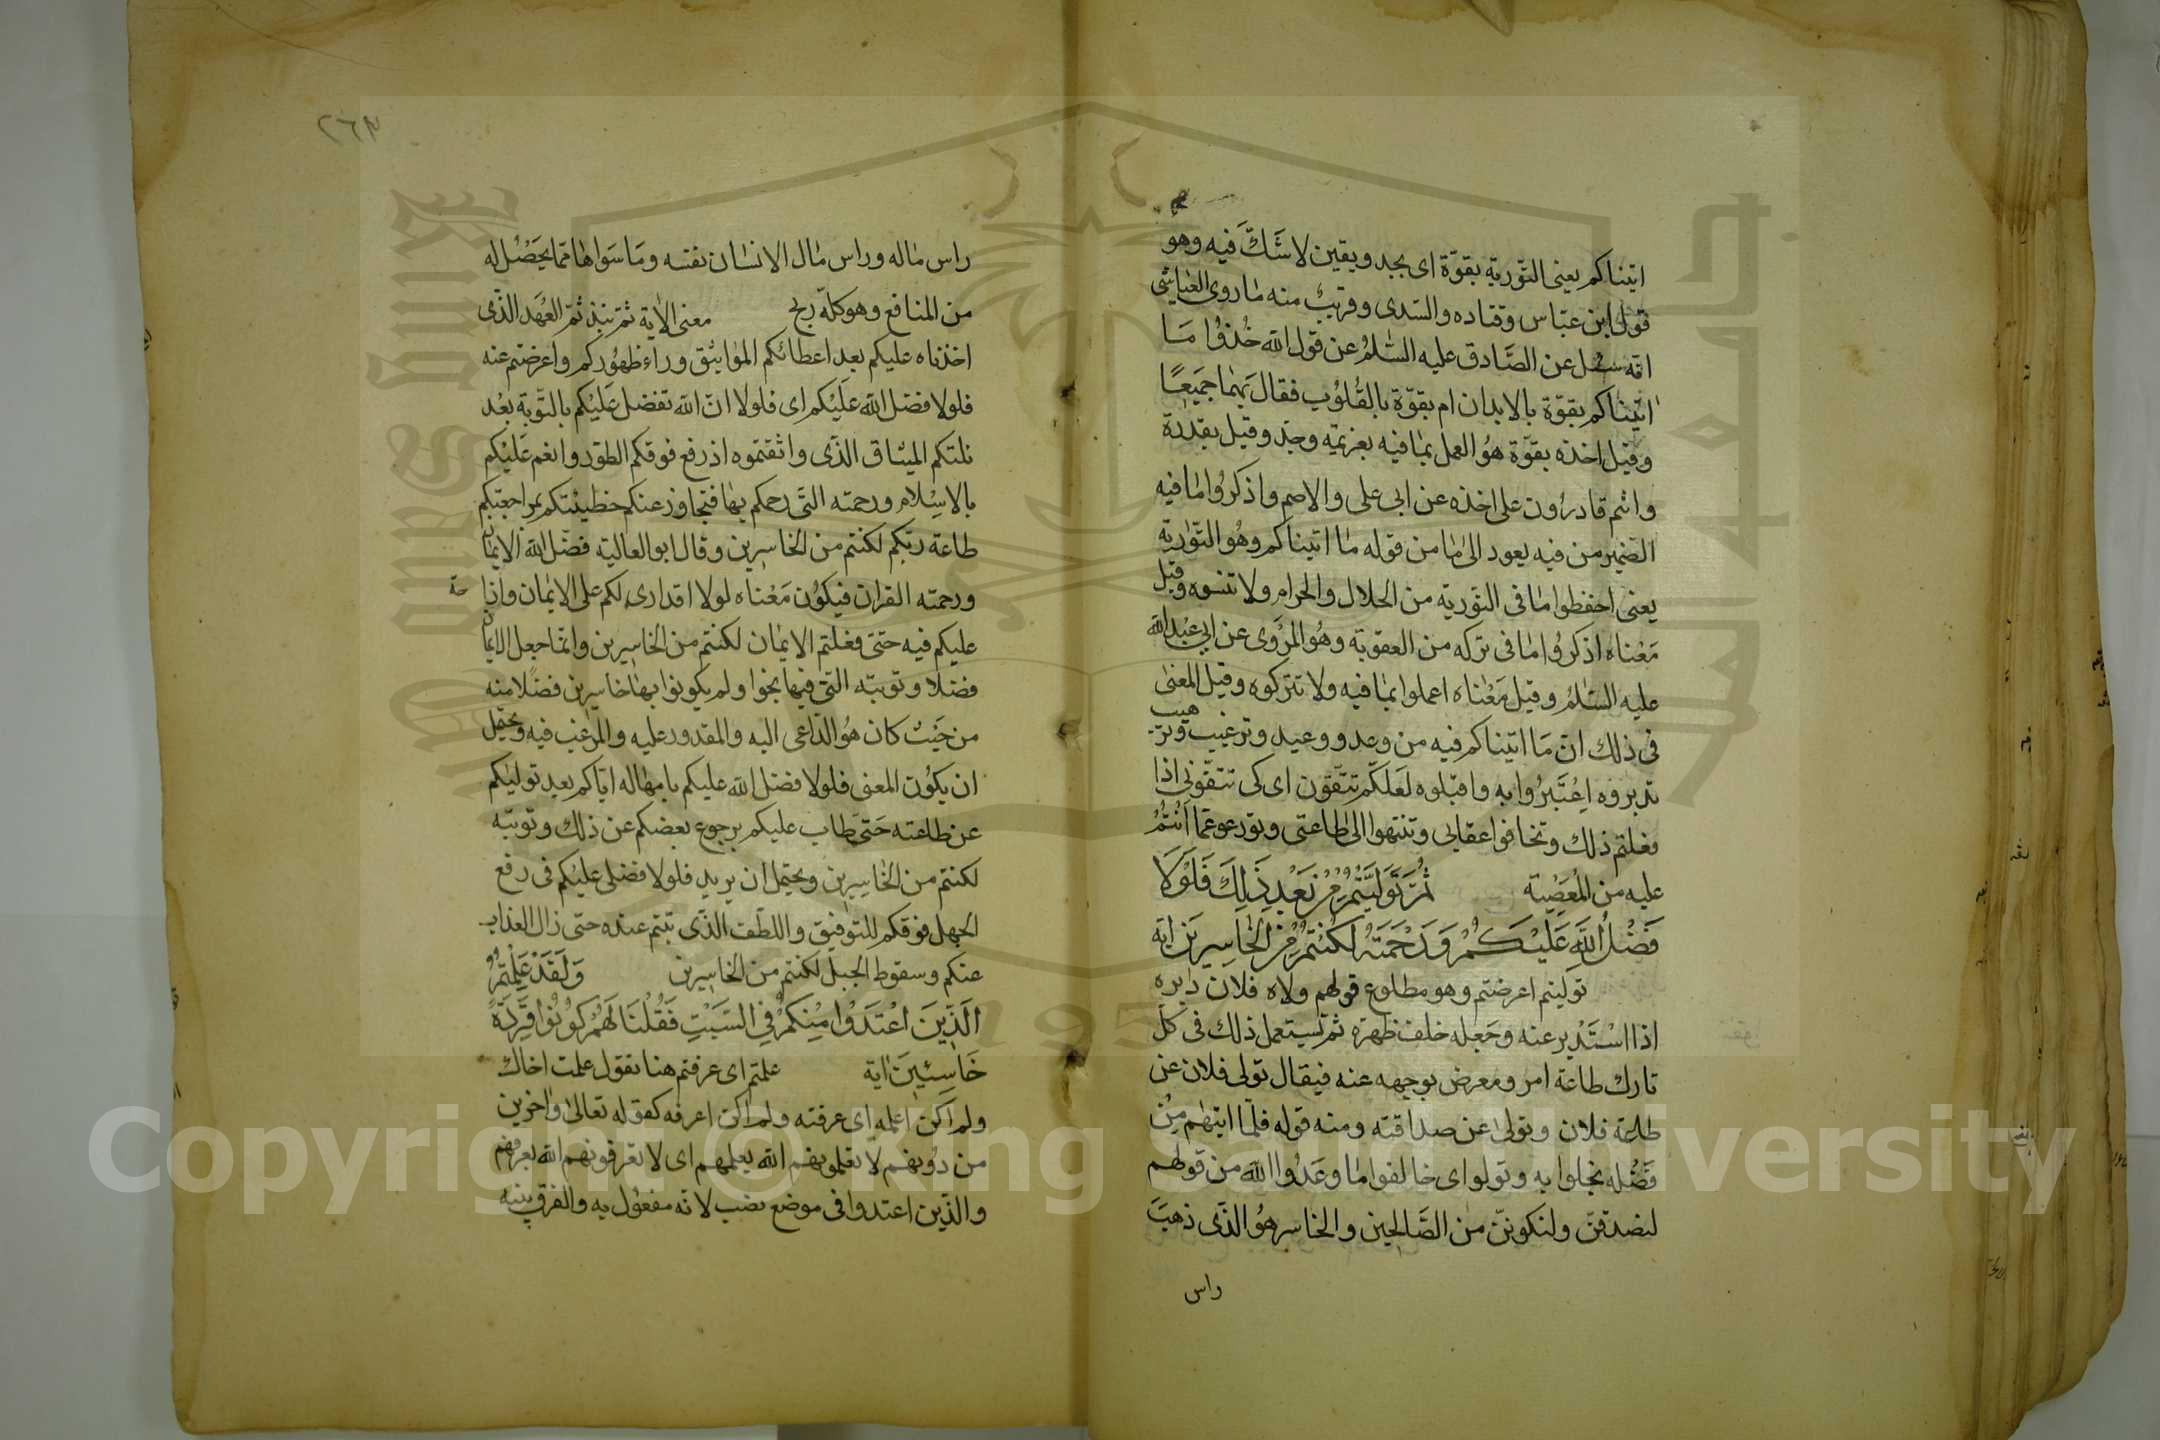 اتيناكم يعنى التّورية بقوّة اى بجد ويقين لا شَكّ فيه وهو
قول ابن عبّاس وقتاده والسّدى وقريبٌ منه ما روى العياشى
انّه سئل عن الصَّادق عليه السّلمُ عن قول الله خُذوُا مَا
اتَيناكم بقوّة بالابدان ام بقوّة بالقُلوُب فقال بَهما جميعًا
وقيل اخذه بقوّة هوُ العمل بما فيه بعزيمة وجدّ وقيل بقدرة
وانتم قادرُون على اخذه عن ابى على والاصم واذكرُوا ما فيه
الضمير من فيه يعود الى ما من قوله ما اتيناكم وهُو التّورٰية
يعنى احفظوا ما فى التّورية من الحلال والحرام ولا تنسوه وقيل
مَعْناه اذكرُوا ما فى تركه من العقوبة وهُو المرْوَى عن ابى عَبْد الله
عليه السّلمُ وقيل مَعْناه اعملوا بما فيه ولا تتركوه وقيل المعنى
فى ذلك انّ مَا اتيناكم فيه من وعد ووعيد وترغيب وترهيب
تدبروه اِعْتَبرُوا به واقبلوه لعَلكّم تتقون اى كى تتقونى اذا
فعلتم ذلك وتخافوا عقابى وتنتهوا الى طاعتى وتودعوا عما اَنْتُمُ
عليه من المعصية ثُمَّ تَوَلَّيْتُمْ مِنْ بَعْدِ ذَلِكَ فَلَوْلَا
فَضْلُ اللَّهِ عَلَيْكُمْ وَرَحْمَتُهُ لَكُنْتُمْ مِنَ الْخَاسِرِيَن اية
توليتم اعرضتم وهو مطاوع قولهم ولاه فلان دبره
اذا اسْتَدْبر عنه وجَعله خلف ظهره ثم يستعمل ذلك فى كلّ
تارك طاعة امر ومعرض بوجهه عنه فيقال تولى فلان عن
طاعة فلان وتولى عن صداقته ومنه قوله فلمّا اتيهم مِنْ
فَضْله بخلوا به وتولوا اى خالفوا ما وعَدُوا الله من قولهم
لنصدقن ولنكوننّ من الصَّالحين والخاسر هُو الذّى ذهبَ
راس
٢٦٣
راس ماله وراس مال الانسان نفسه ومَا سَواها ممّا يحَصُل له
من المنافع وهو كلّه ربح معنى الاية ثمّ نبذتمّ العَهَد الذّى
اخذناه عليكم بعد اعطائكم المواثيق وراء ظهُوركم واعرضتم عنه
فلولا فضل الله عَليْكم اى فلولا انّ الله تفضل عَليْكم بالتّوبة بعْد
نكثكم الميثاق الذّى واثقتموه اذ رفع فوقكم الطوّر وانعم عَليْكم
بالاسِلام ورحمته التّى رحمكم بها فتجاوز عنكم خطيئتكم بمراجعتكم
طاعة ربّكم لكنتم من الخاسِرين وقال ابو العالية فضّل الله الايمان
ورحمته القران فيكوُن مَعْناه لولا اقدارى لكم على الايمان وازاحة
عليكم فيه حتىّ فعلتم الايمان لكنتم من الخاسِرين وانّما جعل الايمان
فضلا وتوبته التىّ فيها نجوا ولم يكونوا بها خاسِرين فضلا منه
من حَيْث كان هُو الدّاعى اليه والمقدور عليه والمرغب فيه ويحتمل
ان يكوُن المعنى فلولا فضل الله عليكم بامهاله ايّاكم بعد توليكم
عن طاعته حَتى تاب عليكم برجوع بعضكم عن ذلك وتوبته
لكنتم من الخاسِرين ويحتمل ان يريد فلولا فضلى عليْكم فى رفع
الجبل فوقكم للتوّفيق واللطّف الذّى تبتم عنده حتى زال العذاب
عنكم وسقوط الجبل لكنتم من الخاسِرين وَلَقَدْ عَلِمْتُمُ
الَّذِينَ اعْتَدَوْا مِنْكُمْ فِي السَّبْتِ فَقُلْنَا لَهُمْ كُونُوا قِرَدَةً
خَاسِئِيَن اية علمتم اى عرفتم هنا تقول علمت اخاك
ولم اكن اعلمه اى عرفته ولم اكن اعرفه كقوله تعالى واخرين
من دُونهم لا تعلمونهم الله يعلمهم اى لا تعرفونهم الله يعرفهم
والذّين اعتدوا فى موضع نصب لانّه مفعوُل به والفرق بينه
Copyright © King Saud University
King Saud University
جامعة الملك سعود
1957